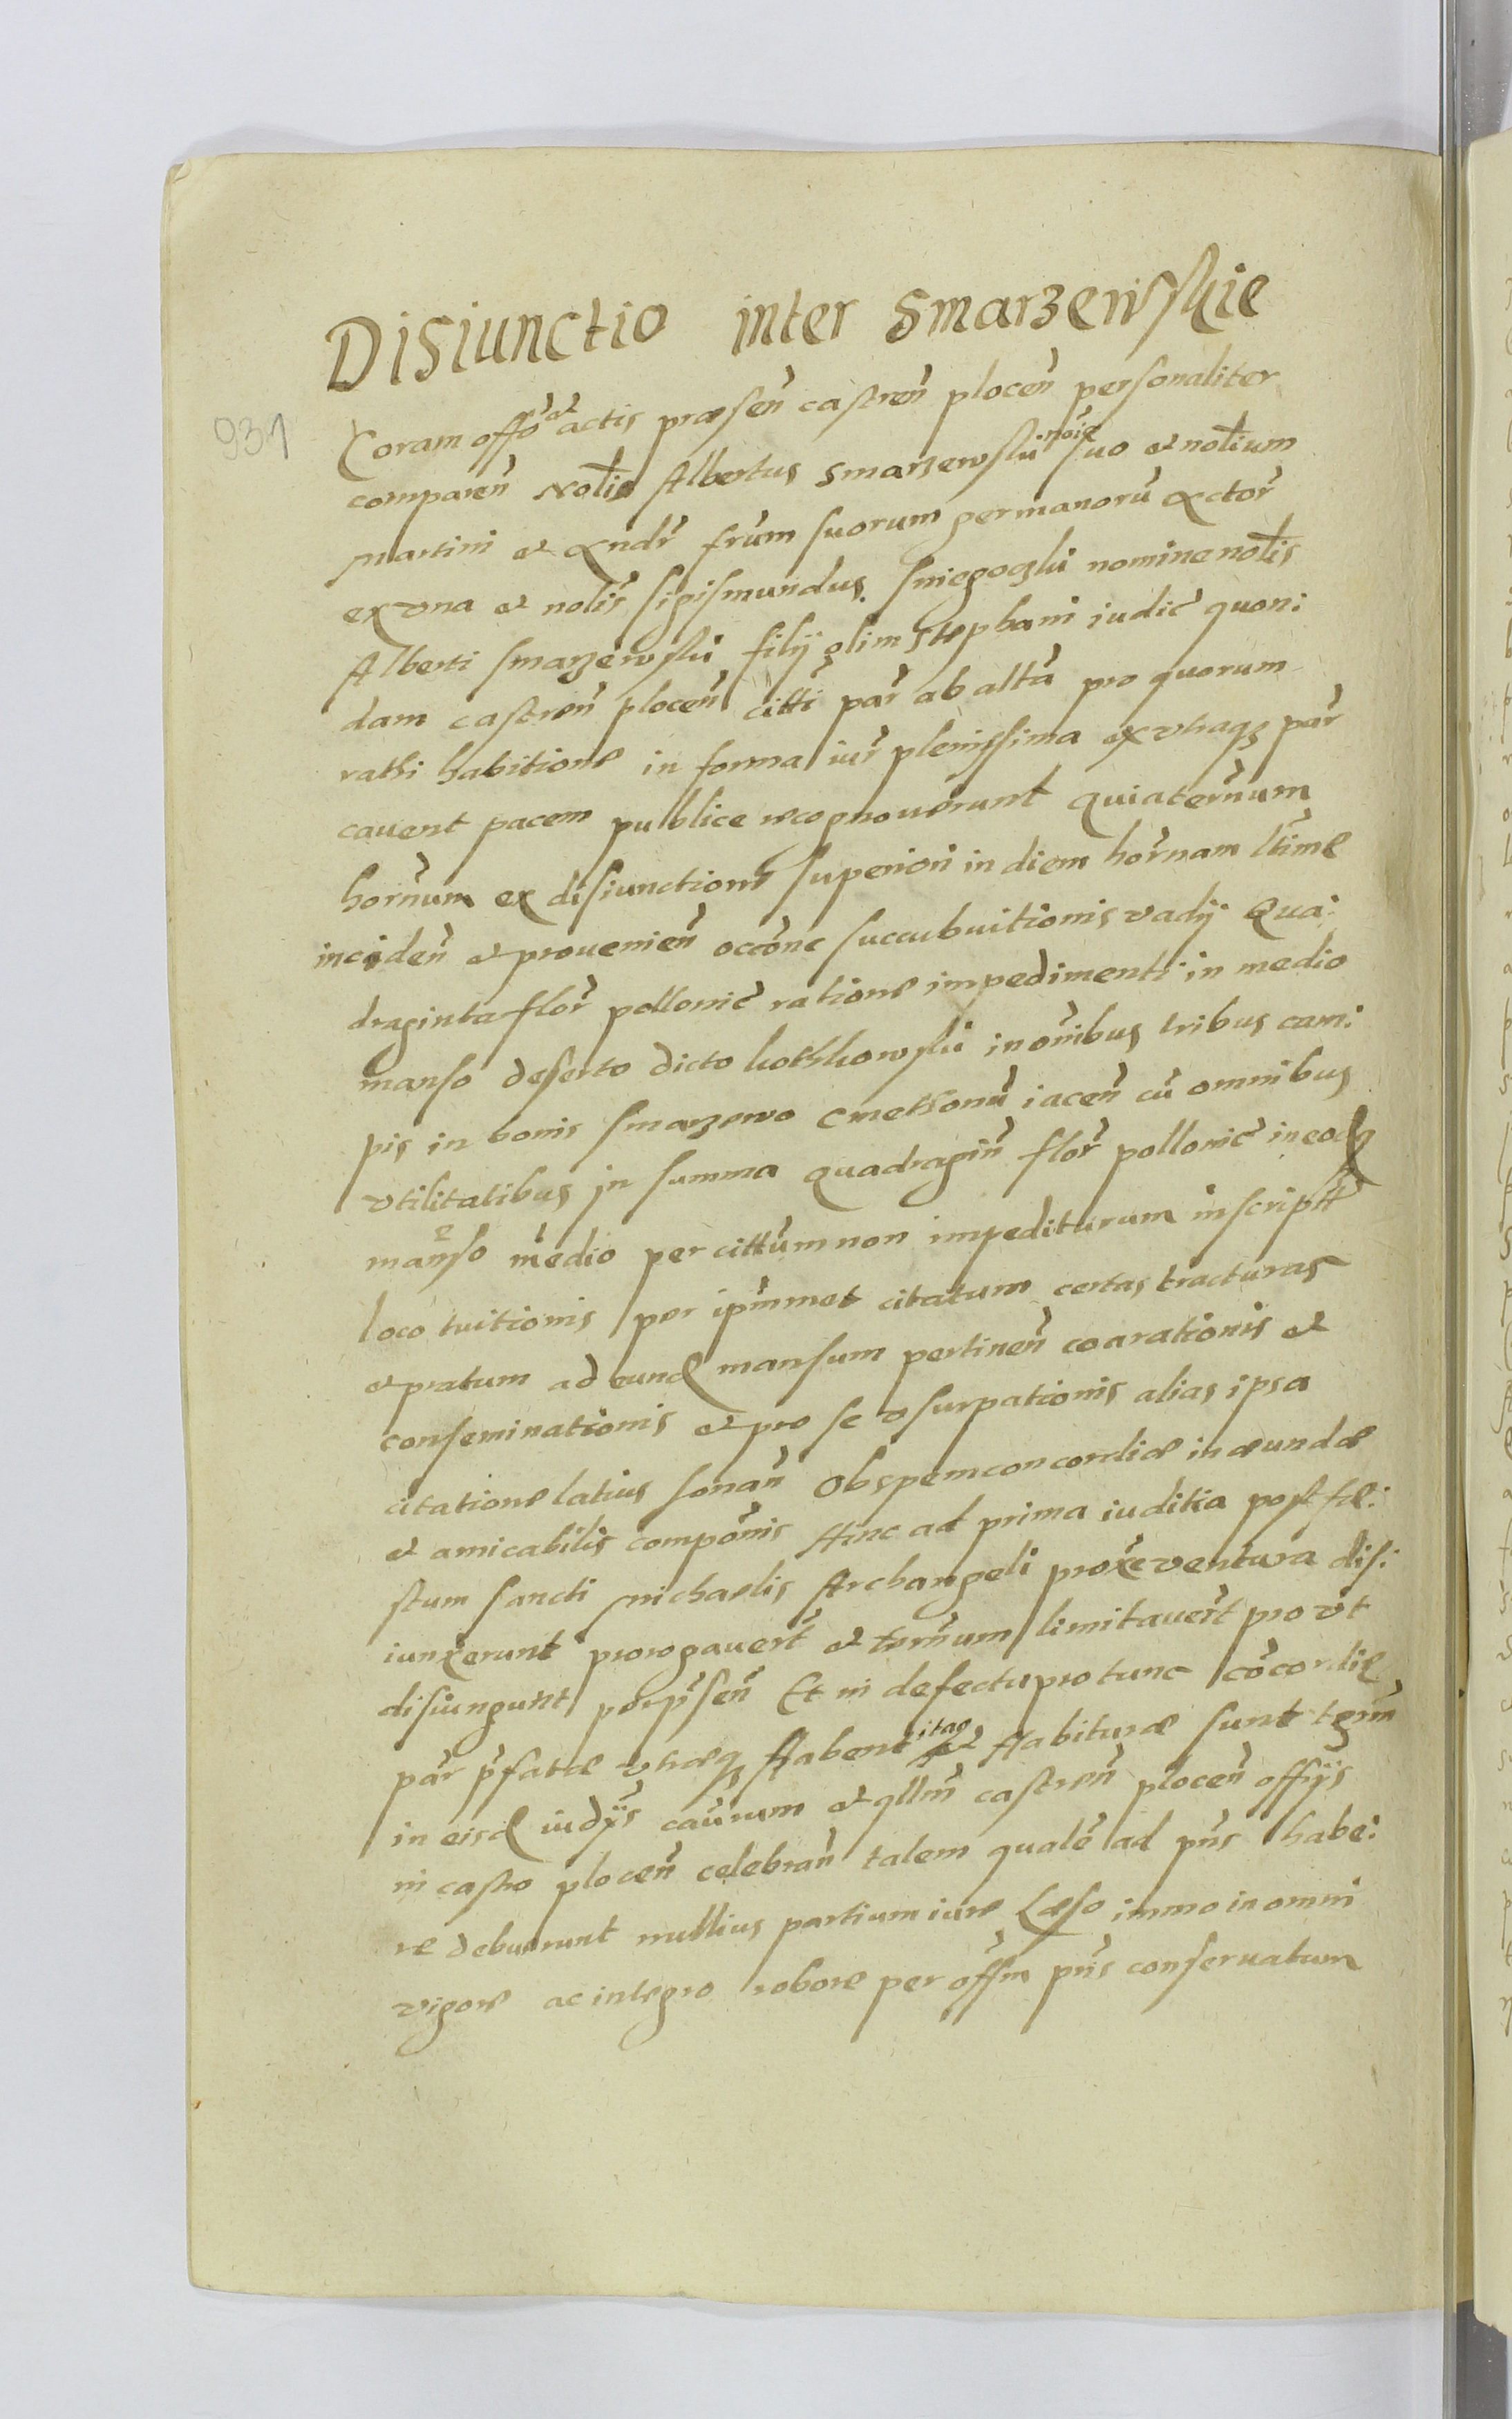 Disiunctio inter Smarzewskie
931
Coram offō et actis præsen̄ castren̄ plocen̄ personaliter
comparen̄ Nobīlis Albertus Smarzewski noīe suo et nobīlium
Martini et Andr̄ frūm suorum germanorū Actor̄
ex vna et nobīlis Sigismundus Sniegoczki nomine nobīlis
Alberti Smarzewski filij olim Stephani iudic̄ quon:
dam castren̄ plocen̄ cittī par̄ ab altā pro quorum
rathi habitione in forma iur̄ plenissima ex vtraqȝ par̄
cauent pacem publice recognouerunt Quia ter̄num
hor̄num ex disiunctione superiori in diem hor̄nam ltīme
inciden̄ et prouenien̄ occōne succubuitionis vadij Qua:
draginta flor̄ pollonic̄ ratione impedimenti in medio
manso deserto dicto kothkowski in oīnibus tribus cam:
pis in bonis Smarzewo Cmethonū iacen̄ cū omnibus
vtilitatibus in summa quadragin̄ flor̄ pollonic̄ in eod
manso medio per cittūm non impediturum inscript
loco tuitionis per ipm̄met citatum certas tracturas
et pratum ad eund mansum pertinen̄ coarationis et
conseminationis et pro se vsurpationis alias ipsa
citatione latius sonan̄ Ob spem concordiæ ineundæ
et amicabilis compōnis Hinc ad prima iuditia post fe:
stum sancti Michaelis Archangeli prox̄e ventura dis:
iunxerunt prorogauer̄t et ter̄num limitauer̄t pro vt
disiungunt per p̄sen̄ Et in defectu pro tunc cōcordiæ
par̄ p̄fatæ vtræqȝ habent itaq et Habituræ sunt tr̄num
in eisd iudijs cau̅rum et qllm̄ castren̄ plocen̄ offijs
in castro plocen̄ celebran̄ talem qualē ad pn̄s habe:
re debuerunt nullius partium iure Læso immo in omni
vigore ac integro robore per offm̄ pn̄s conseruatum